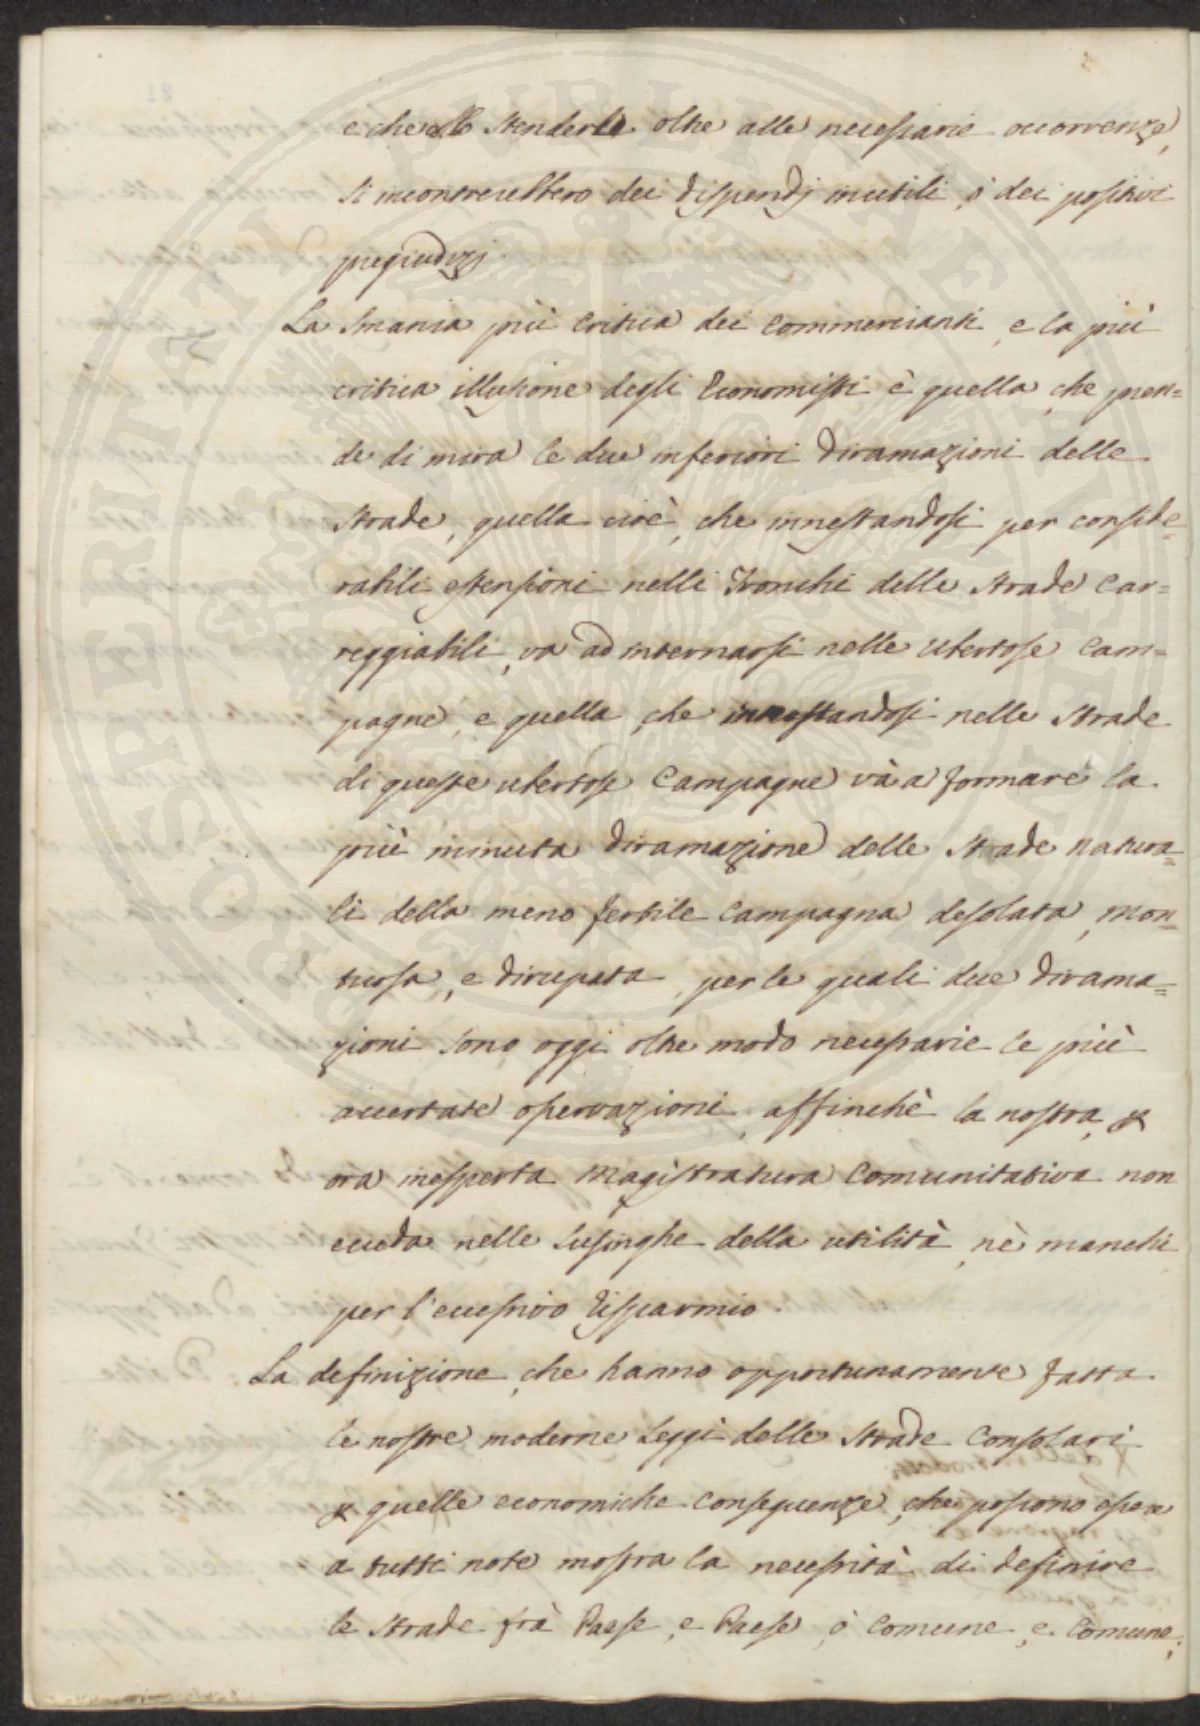 e che allo stenderle oltre alle necessarie occorrenze,
si incontrerebbero dei dispendj inutili, ò dei positivi
pregiudizj.
La smania più critica dei Commercianti, e la più
critica illusione degli Economisti è quella, che pren=
de di mira le due inferiori diramazioni delle
Strade, quella cioè, che innestandosi per conside=
rabili estensioni nelli Tronchi delle Strade Car=
reggiabili, va ad internarsi nelle ubertose Cam=
pagne, e quella, che innestandosi nelle Strade
di queste ubertose Campagne và a formare la
più minuta diramazione delle Strade natura=
li della meno fertile Campagna desolata, mon=
tuosa, e dirupata, per le quali due dirama=
zioni sono oggi oltre modo necessarie le più
accertate osservazioni, affinchè la nostra, &
ora inesperta Magistratura Comunitativa non
ecceda nelle lusinghe della utilità, nè manchi
per l'eccessivo risparmio.
La definizione, che hanno opportunamente fatta
le nostre moderne Leggi delle Strade Consolari
& quelle economiche conseguenze, che possono essere
a tutti note mostra la necessità di definire
le Strade frà Paese, e Paese, ò Comune, e Comune,
PROSPERITATI PUBLICAE